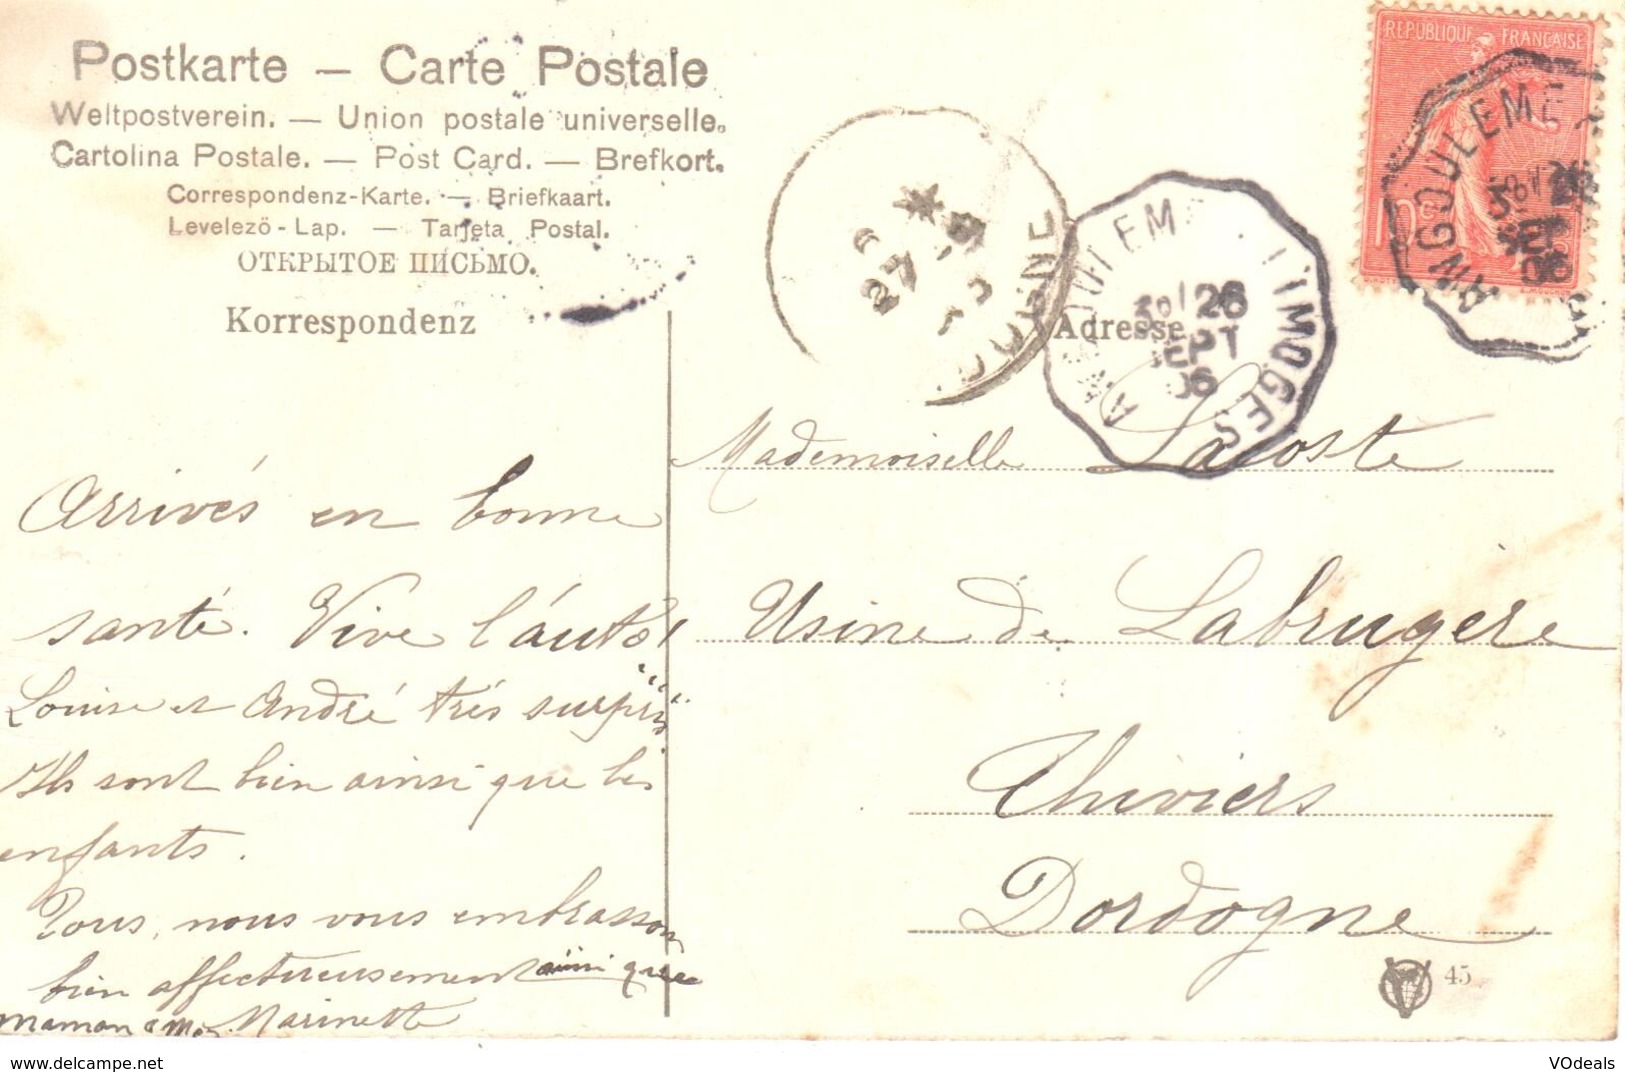 Postkarte – Carte Postale
Weltpostverein. — Union postale universelle.
Cartolina Postale. — Post Card. — Brefkort.
Correspondenz-Karte. — Briefkaart.
Levelező-Lap. — Tarjeta Postal.
ОТКРЫТОЕ ПИСЬМО.
Korrespondenz
Adresse
REPUBLIQUE FRANÇAISE
10c
ANGOULEME
26
SEPT
06
ANGOULEME A LIMOGES
26
SEPT
06
27
DORDOGNE
Arrivés en bonne
santé. Vive l'auto!
Louise et André très surpris
Ils sont bien ainsi que les
enfants.
Tous, nous vous embrassons
bien affectueusement ainsi que
maman & Marinette
Mademoiselle Lacoste
Usine de Labrugère
Thiviers
Dordogne
45
www.delcampe.net
VOdeals